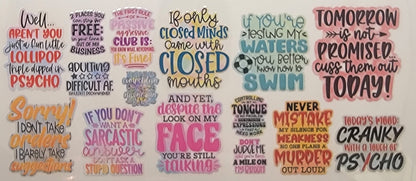 Well...
AREN'T YOU
Just a fun little
LOLLIPOP
triple dipped in
PSYCHO
2 PLACES YOU
can stay:
FREE
in your lane
OUT OF MY
BUSINESS
ADULTING
DIFFICULT AF
THE FIRST RULE
of passive
aggressive
CLUB IS:
YOU KNOW WHAT, NEVERMIND.
It's Fine!
If only
CLOSED Minds
came with
CLOSED
mouths
if you're
testing MY
WATERS
you better
know how to
SWIM
TOMORROW
is not
PROMISED.
cuss them out
TODAY!
Sorry!
I DON'T TAKE
orders
I BARELY TAKE
suggestions
IF YOU DON'T
WANT A
SARCASTIC
answer,
DON'T ASK A
STUPID QUESTION
AND YET,
despite the
LOOK ON MY
FACE
YOU'RE STILL
talking
CONTROLLING
MY
TONGUE
IS NO
PROBLEM
EXPRESSION
DON'T
JUDGE ME
until you've
NEVER
MISTAKE
MY SILENCE FOR
WEAKNESS
NO ONE PLANS A
MURDER
OUT LOUD
TODAY'S MOOD:
CRANKY
WITH A TOUCH OF
PSYCHO